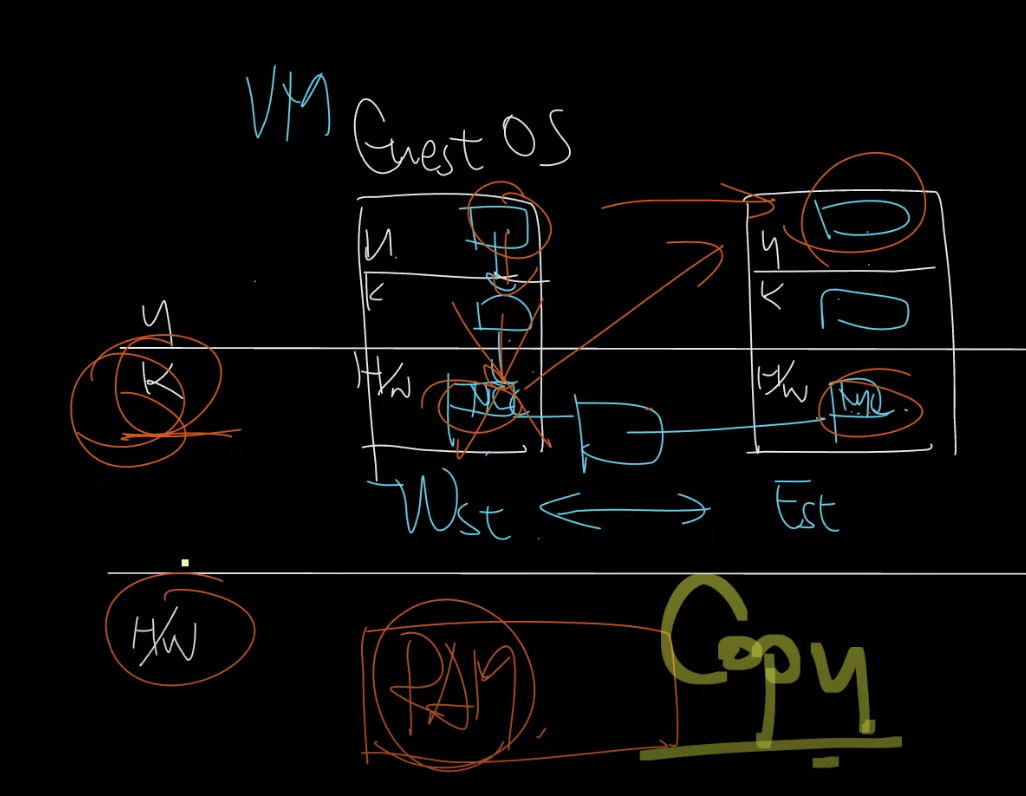 VM
Guest OS
U
K
U
K
U
K
H/W
NIC
H/W
NIC
Wst
Est
H/W
RAM
Copy